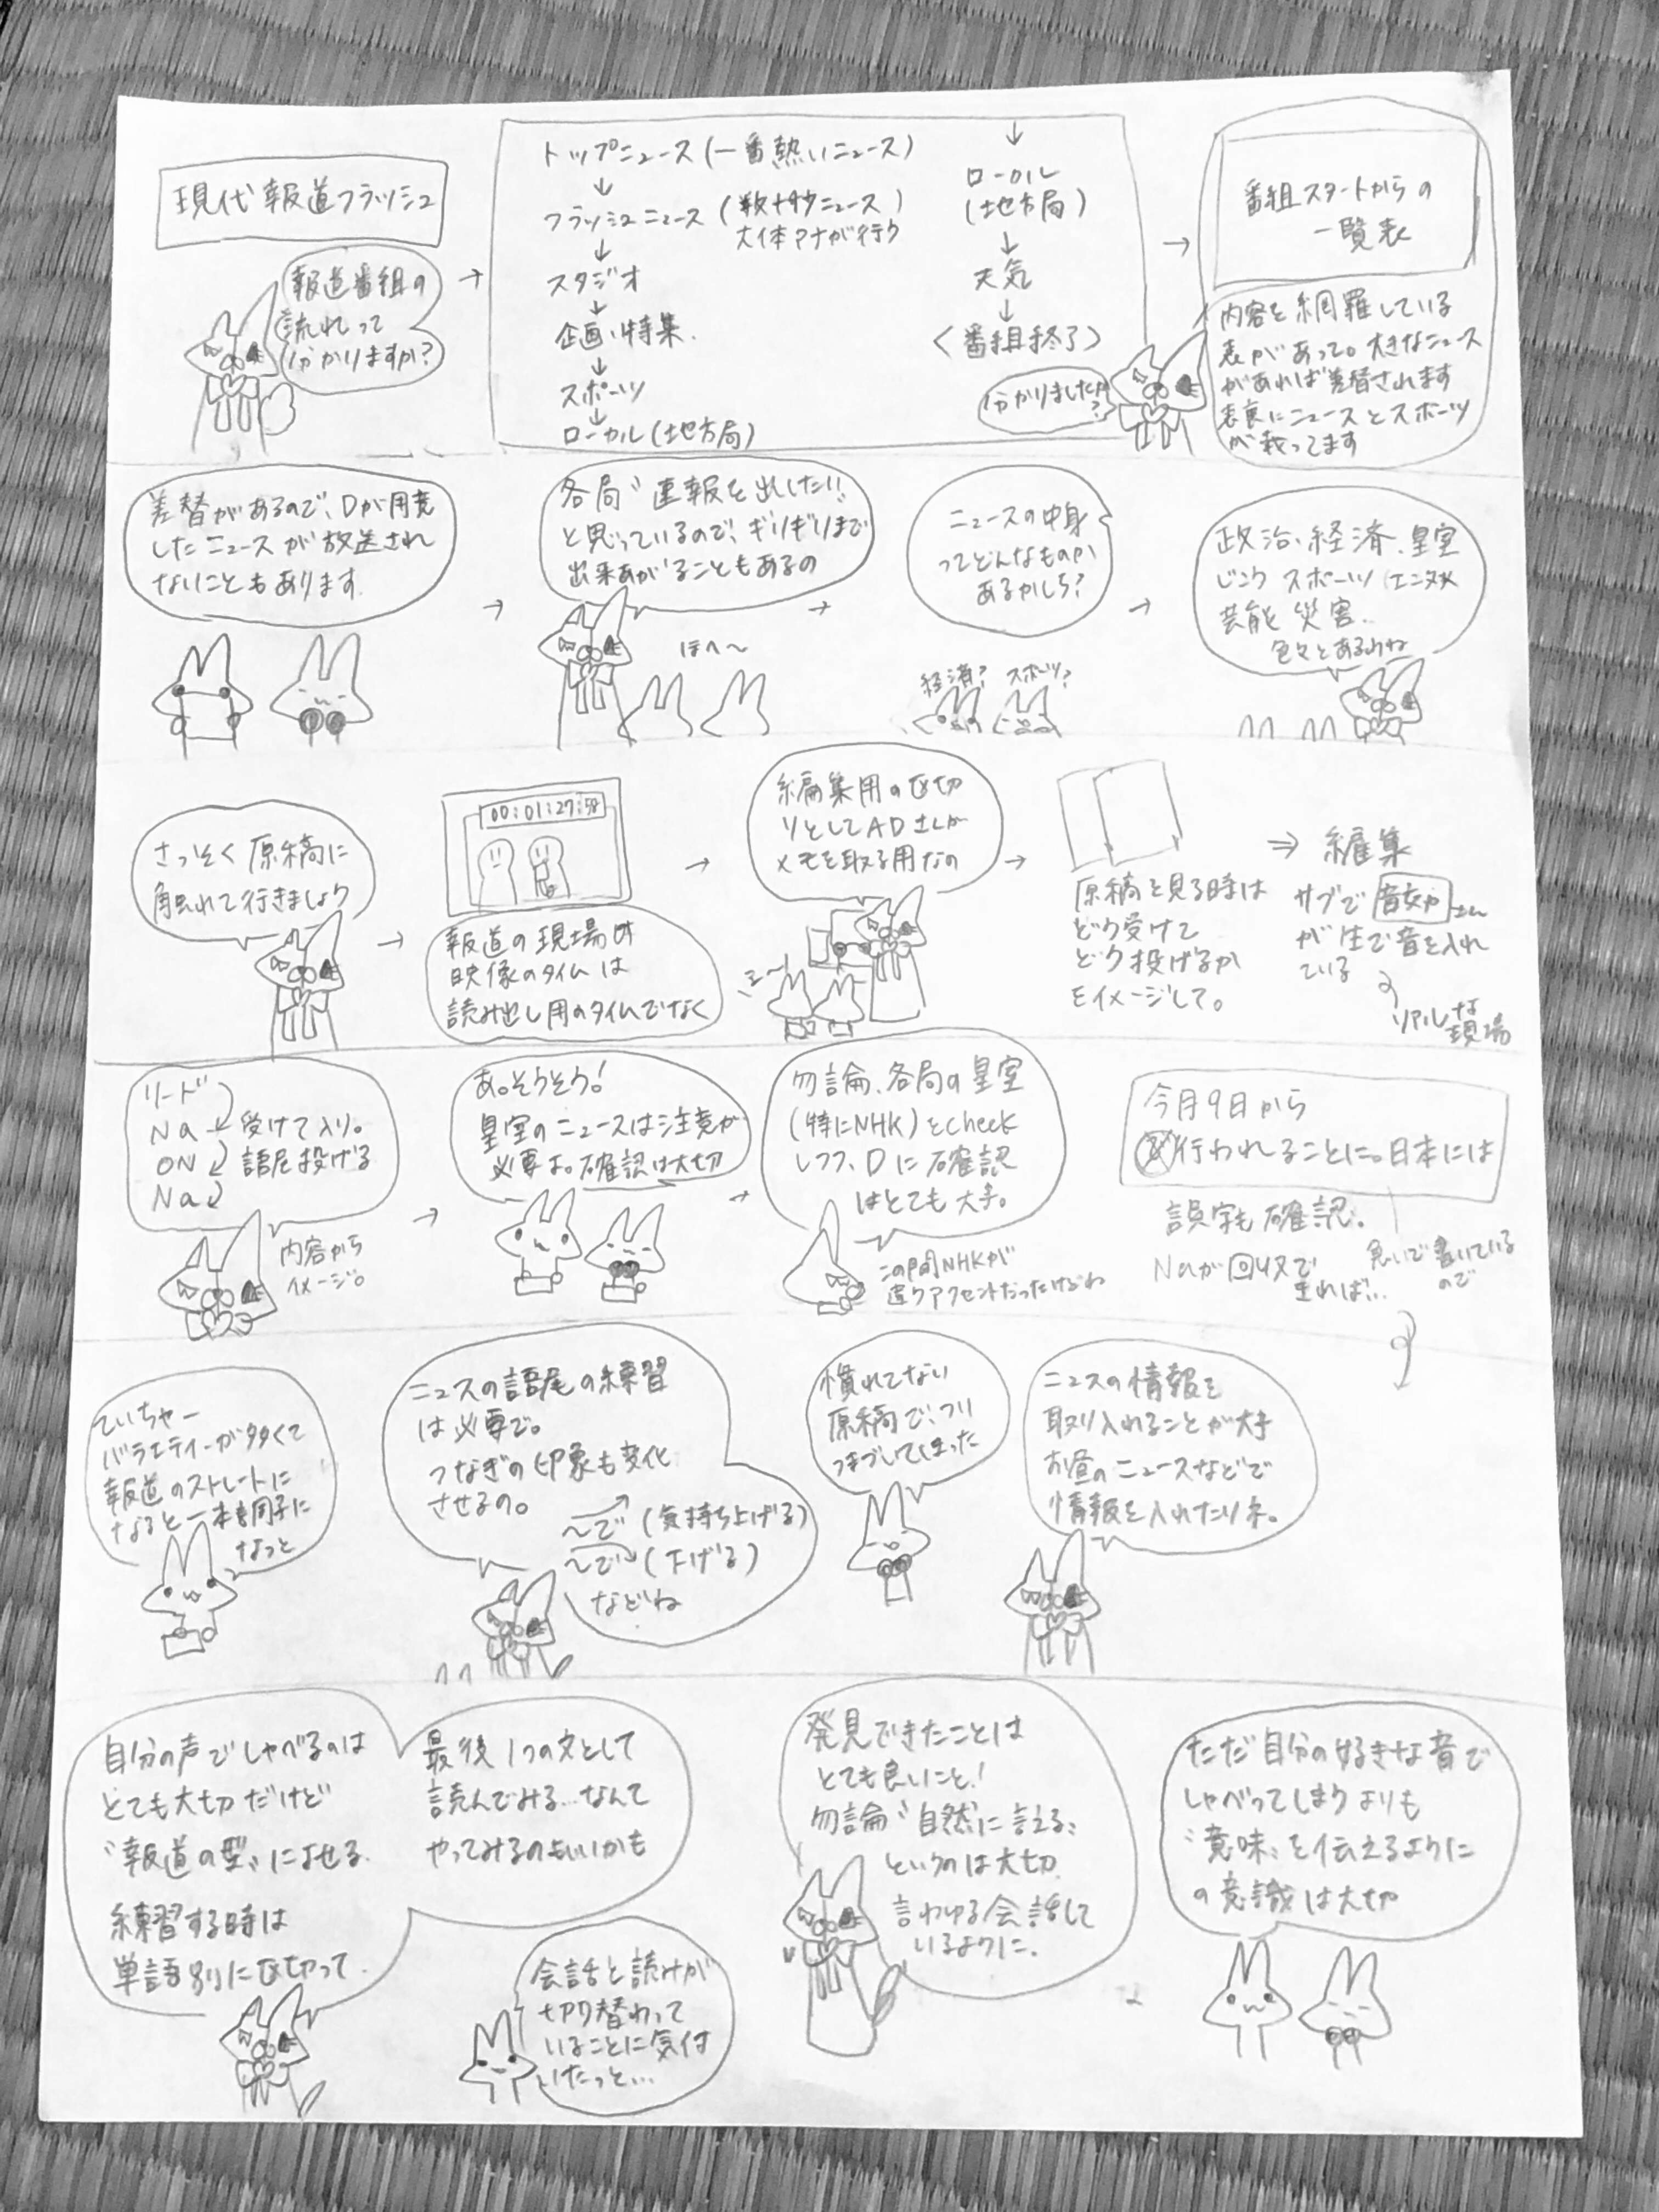 現代報道フラッシュ
報道番組の
流れって
分かりますか?
トップニュース(一番熱いニュース)
↓
フラッシュニュース(数十秒ニュース)
大体アナが行う
↓
スタジオ
↓
企画・特集
↓
スポーツ
↓
ローカル(地方局)
↓
ローカル
(地方局)
↓
天気
↓
<番組終了>
分かりましたか
?
番組スタートからの
一覧表
内容を網羅している
表があって。大きなニュース
があれば差替されます
表裏にニュースとスポーツ
が載ってます
差替があるので、Dが用意
したニュースが放送され
ないこともあります
各局〝速報を出したい!
と思っているので、ギリギリまで
出来あがることもあるの
ほへ〜
ニュースの中身
ってどんなものが
あるかしら?
経済? スポーツ?
政治、経済、皇室
じこう スポーツ
芸能 災害..
色々とあるわね
さっそく原稿に
触れて行きましょう
00:01:27:58
報道の現場は
映像のタイムは
読み出し用のタイムでなく
編集用の区切
りとしてADさんが
メモを取る用なの
原稿を見る時は
どう受けて
どう投げるか
をイメージして。
⇒ 編集
サブで
さん
が生で音を入れ
ている
リアルな
現場
リード
Na 受けて入り。
ON 語尾投げる
Na
内容から
イメージ。
あ。そうそう!
皇室のニュースは注意が
必要よ。確認は大切
勿論、各局の皇室
(特にNHK)とcheck
しつつ、Dに確認
はとても大事。
この間NHKが
違うアクセントだったけどね
今月9日から
行われることに。日本には
誤字も確認。
Naが回収で
きれば...
急いで書いている
ので
ていちゃー
バラエティーが多くて
報道のストレートに
なると一本調子に
なっと
ニュースの語尾の練習
は必要で。
つなぎの印象も変化
させるの。
〜で(気持ち上げる)
〜で(下げる)
などね
慣れてない
原稿で、つり
つまづしてしまった
ニュースの情報を
取り入れることが大事
お昼のニュースなどで
情報を入れたりネ。
自分の声でしゃべるのは
とても大切だけど
〝報道の型〟によせる
練習する時は
単語別に区切って
最後1つの文として
読んでみる...なんて
やってみるのもいいかも
会話と読みが
切り替わって
いることに気付
いたっと...
発見できたことは
とても良いこと!
勿論〝自然に言える〟
というのは大切
言わゆる会話して
いるように.
ただ自分の好きな音で
しゃべってしまうよりも
〝意味〟を伝えるように
の意識は大切